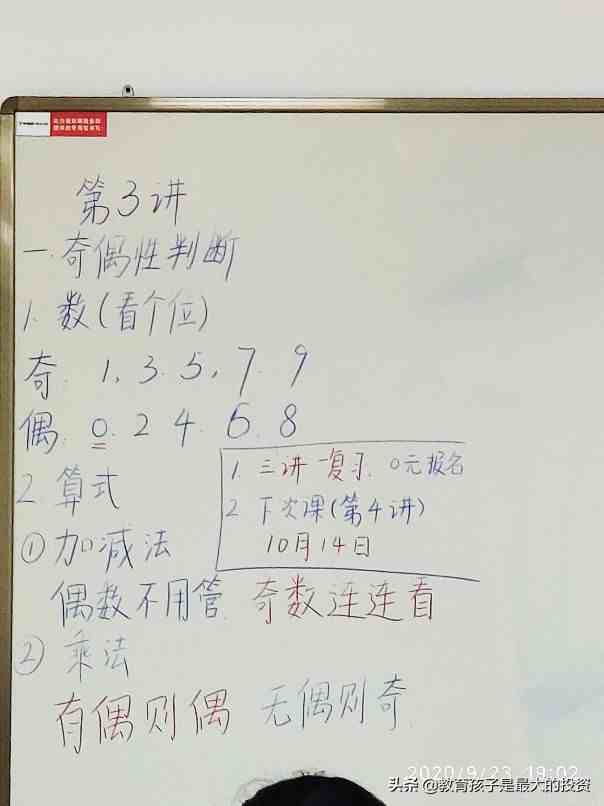 第3讲
一.奇偶性判断
1. 数(看个位)
奇. 1. 3. 5. 7. 9
偶. 0. 2 4. 6. 8
1. 三讲一复习. 0元报名
2. 算式
2 下次课(第4讲)
10月14日
①加减法
偶数不用管. 奇数连连看
② 乘法
有偶则偶 无偶则奇.
2020/9/23 19:02
头条 @教育孩子是最大的投资